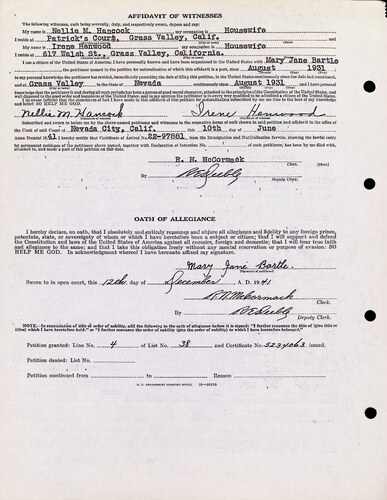 AFFIDAVIT OF WITNESSES
The following witnesses, each being severally, duly, and respectively sworn, depose and say:
My name is Nellie M. Hancock my occupation is Housewife
I reside at Patrick's Court, Grass Valley, Calif. and
My name is Irene Henwood my occupation is Housewife
I reside at 617 Walsh St., Grass Valley, California.
I am a citizen of the United States of America; I have personally known and have been acquainted in the United States with Mary Jane Bartle
, the petitioner named in the petition for naturalization of which this affidavit is a part, since August 1931
to my personal knowledge the petitioner has resided, immediately preceding the date of filing this petition, in the United States continuously since the date last mentioned,
and at Grass Valley, in the State of Nevada continuously since August 1931, and I have personal
knowledge that the petitioner is and during all such periods has been a person of good moral character, attached to the principles of the Constitution of the United States, and well
disposed to the good order and happiness of the United States, and in my opinion the petitioner is in every way qualified to be admitted a citizen of the United States.
I do swear (affirm) that the statements of fact I have made in this affidavit of this petition for naturalization subscribed by me are true to the best of my knowledge
and belief: SO HELP ME GOD.
Nellie M. Hancock Irene Henwood
Subscribed and sworn to before me by the above-named petitioner and witnesses in the respective forms of oath shown in said petition and affidavit in the office of
the Clerk of said Court at Nevada City, Calif. this 10th day of June
Anno Domini 1941 I hereby certify that Certificate of Arrival No. 22-97881 from the Immigration and Naturalization Service, showing the lawful entry
for permanent residence of the petitioner above named, together with Declaration of Intention No. of such petitioner, has been by me filed with,
attached to, and made a part of this petition on this date.
R. N. McCormack
Clerk.
By
Deputy Clerk.
OATH OF ALLEGIANCE
I hereby declare, on oath, that I absolutely and entirely renounce and abjure all allegiance and fidelity to any foreign prince,
potentate, state, or sovereignty of whom or which I have heretofore been a subject or citizen; that I will support and defend
the Constitution and laws of the United States of America against all enemies, foreign and domestic; that I will bear true faith
and allegiance to the same; and that I take this obligation freely without any mental reservation or purpose of evasion: SO
HELP ME GOD. In acknowledgment whereof I have hereunto affixed my signature.
Mary Jane Bartle
Sworn to in open court, this 12th day of December A. D. 1941
R. N. McCormack
Clerk.
By
Deputy Clerk.
NOTE.—In renunciation of title of order of nobility, add the following to the oath of allegiance before it is signed: "I further renounce the title of (give title or
titles) which I have heretofore held," or "I further renounce the order of nobility (give the order of nobility) to which I have heretofore belonged."
Petition granted: Line No. 4 of List No. 38 and Certificate No. 5234063 issued.
Petition denied: List No.
Petition continued from to Reason
U. S. GOVERNMENT PRINTING OFFICE